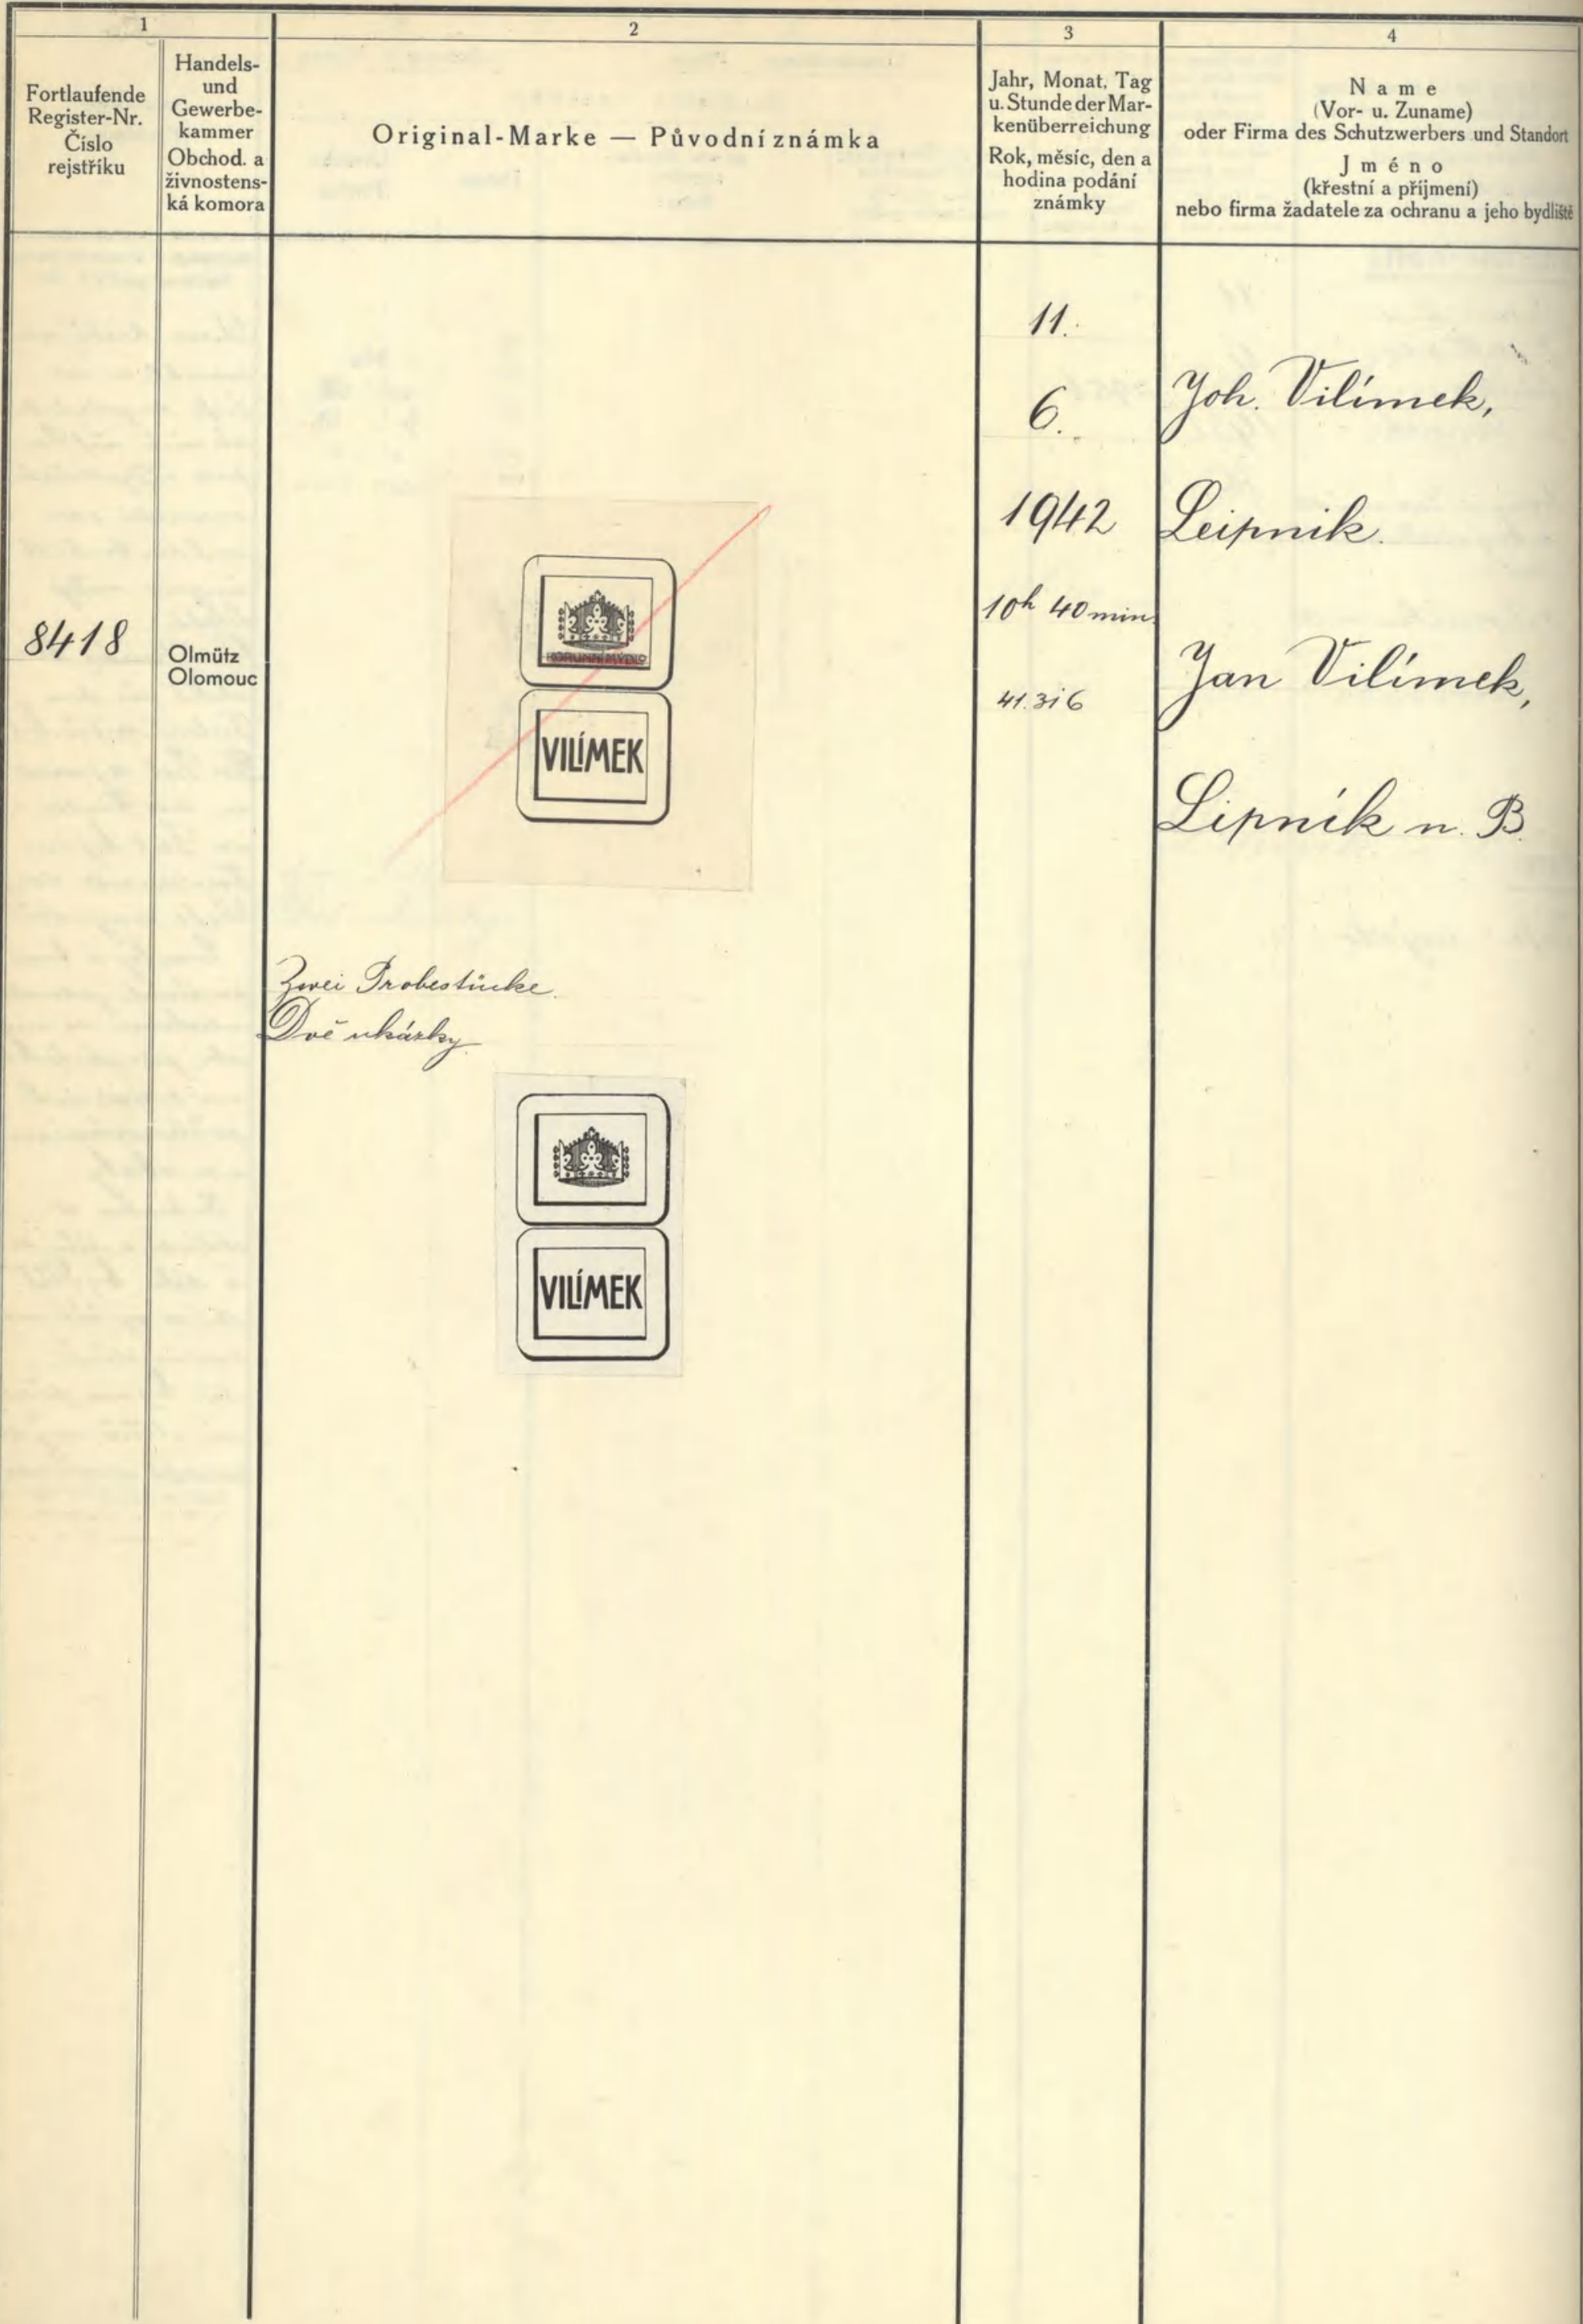 1
2
3
4
Fortlaufende
Register-Nr.
Číslo
rejstříku
Handels-
und
Gewerbe-
kammer
Obchod. a
živnostens-
ká komora
Original-Marke — Původní známka
Jahr, Monat, Tag
u. Stunde der Mar-
kenüberreichung
Rok, měsíc, den a
hodina podání
známky
Name
(Vor- u. Zuname)
oder Firma des Schutzwerbers und Standort
Jméno
(křestní a příjmení)
nebo firma žadatele za ochranu a jeho bydliště
8418
Olmütz
Olomouc
KORUNNÍ MÝDLO
VILÍMEK
Zwei Probestücke.
Dvě ukázky.
VILÍMEK
11.
6.
1942
10h 40 min
Joh. Vilímek,
Leipnik.
Jan Vilímek,
Lipník n. B.